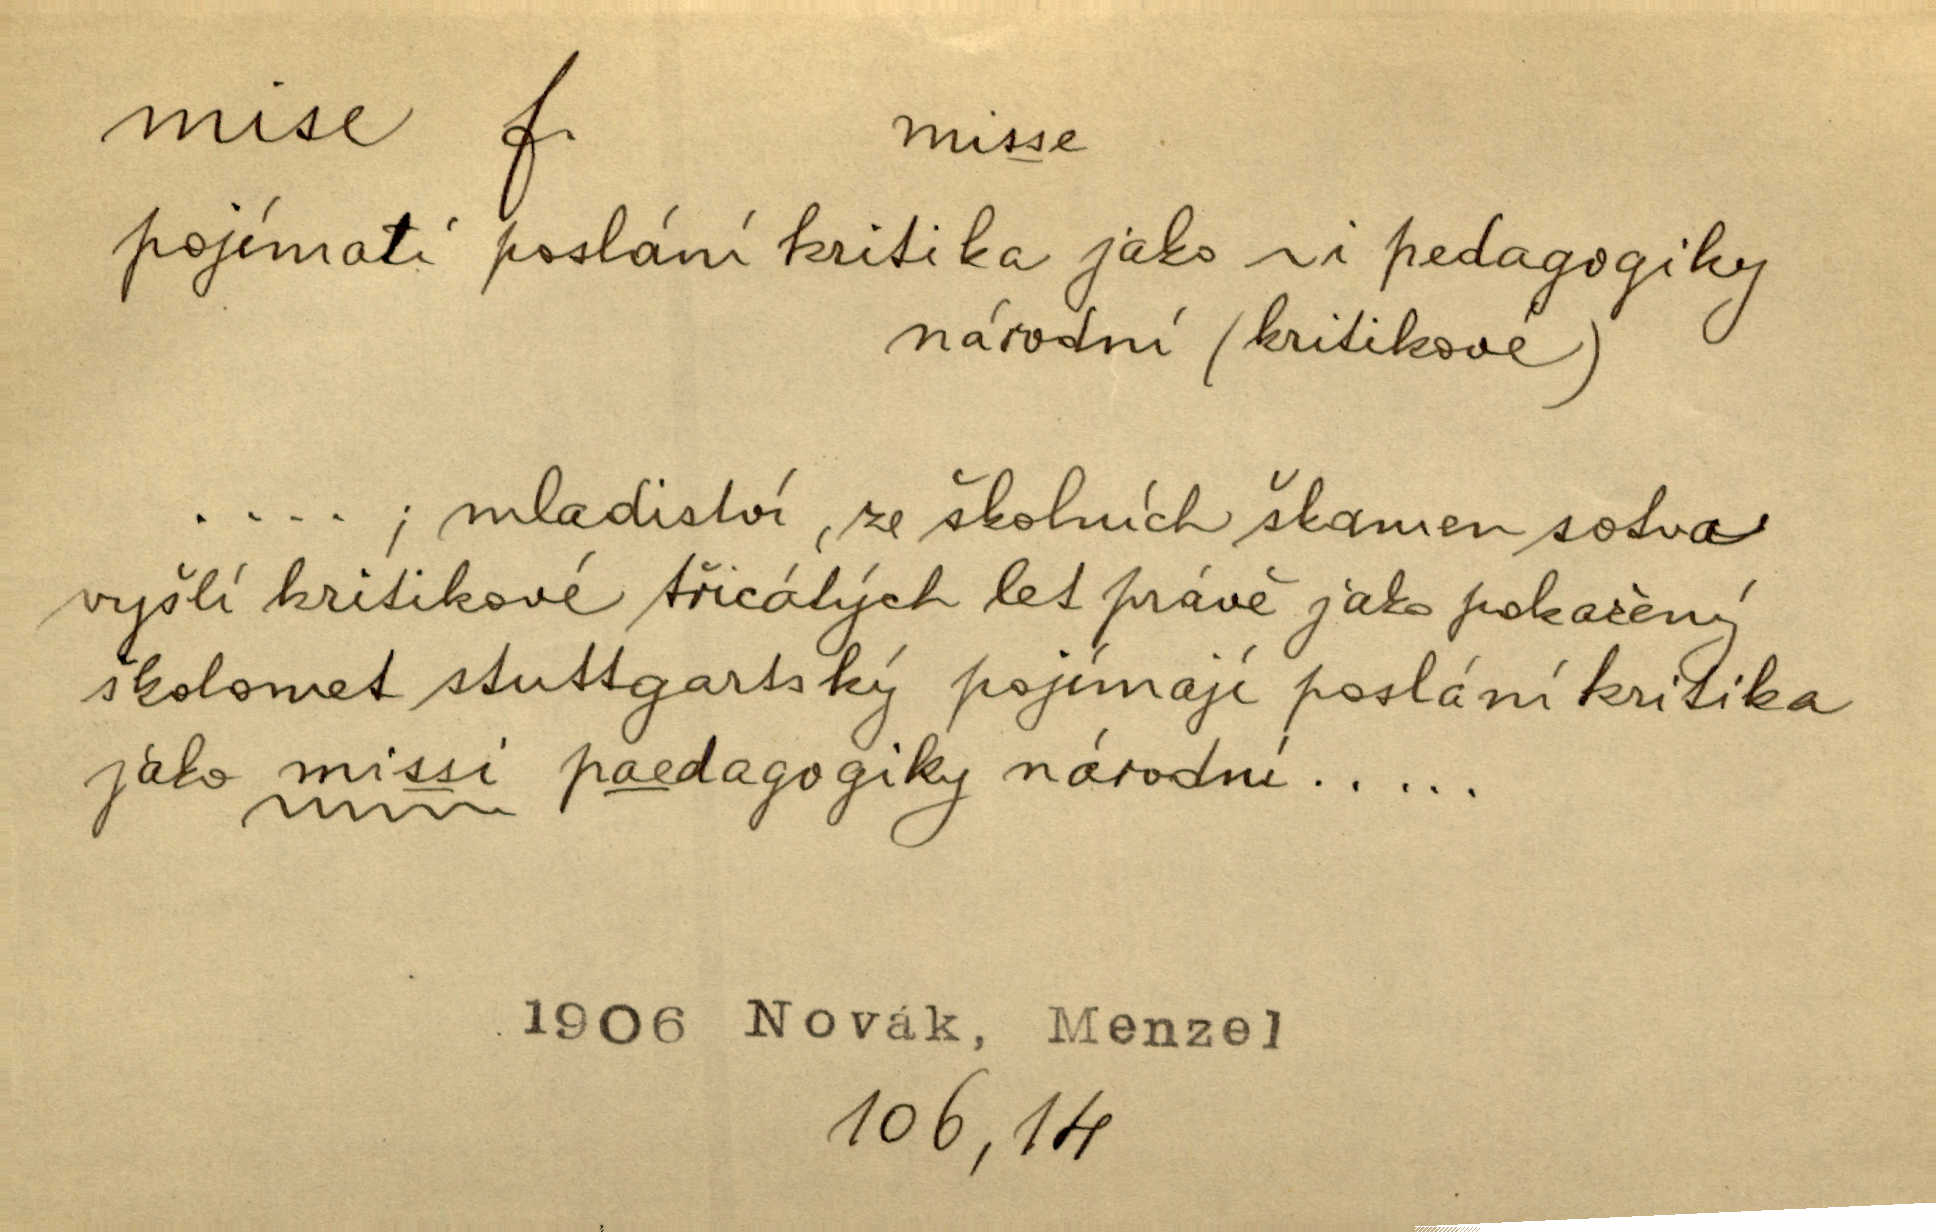 mise f. misse
pojímati poslání kritika jako ~i pedagogiky
národní (kritikové)
. . . . ; mladiství, ze školních škamen sotva
vyšlí kritikové třicátých let právě jako pokažený
školomet stuttgartský pojímají poslání kritika
jako missi paedagogiky národní . . . . .
1906 Novák, Menzel
106,14